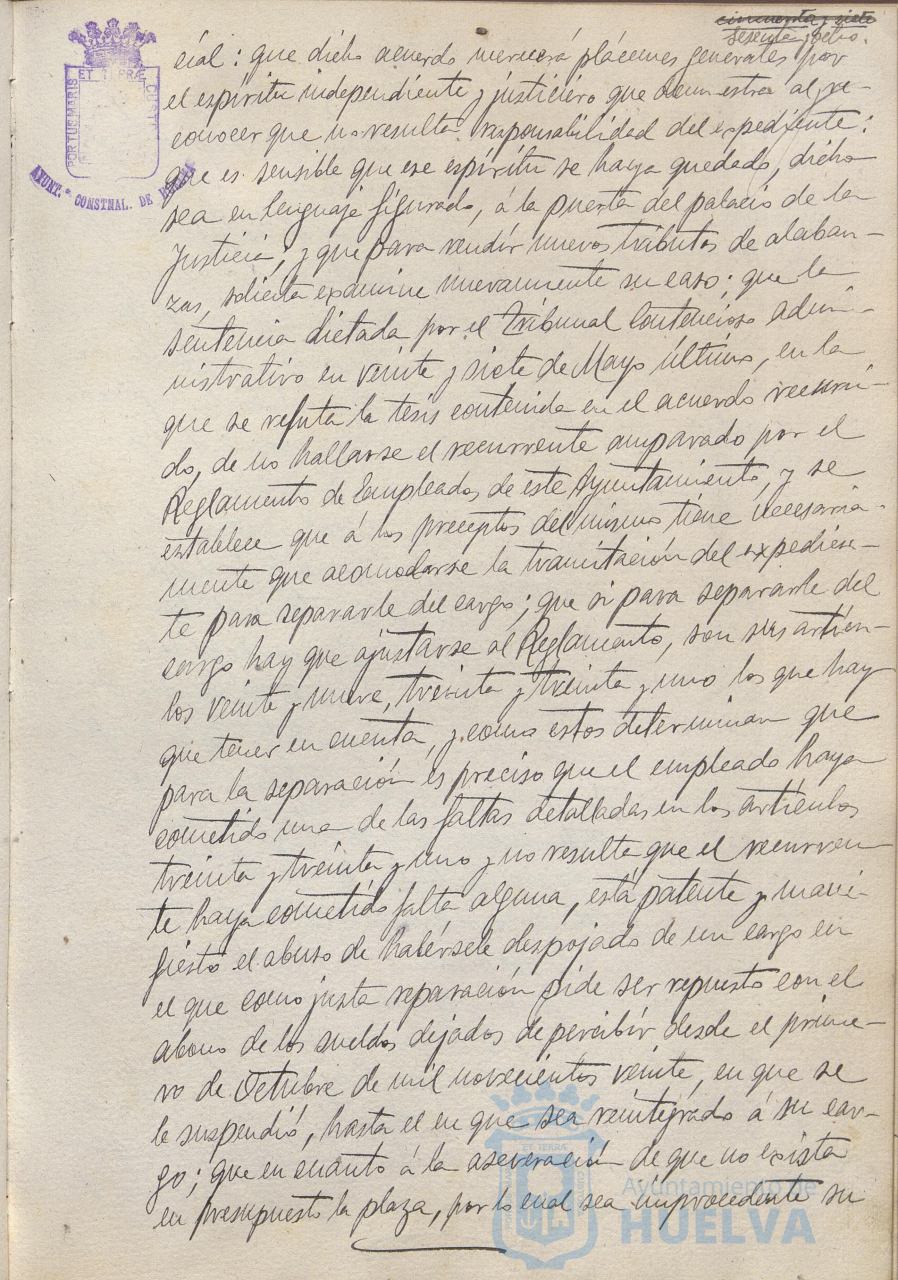 cincuenta y siete
Sesenta y ocho.
ET TERRÆ CUSTODIA
PORTUS MARIS
AYUNT.º CONSTNAL. DE HUELVA
cial: que dicho acuerdo merecerá plácemes generales por
el espíritu independiente y justiciero que demuestra al re-
conocer que no resulta responsabilidad del expediente:
que es sensible que ese espíritu se haya quedado, dicho
sea en lenguaje figurado, á la puerta del palacio de la
Justicia, y que para rendir nuevos tributos de alaban-
zas, solicita examine nuevamente su caso; que la
sentencia dictada por el Tribunal Contencioso admi-
nistrativo en veinte y siete de Mayo último, en la
que se refuta la tesis contenida en el acuerdo recurri-
do, de no hallarse el recurrente amparado por el
Reglamento de Empleados de este Ayuntamiento, y se
establece que á los preceptos del mismo tiene necesaria-
mente que acomodarse la tramitación del expedien-
te para separarle del cargo; que si para separarle del
cargo hay que ajustarse al Reglamento, son sus artícu-
los veinte y nueve, treinta y treinta y uno los que hay
que tener en cuenta, y como estos determinan que
para la separación es preciso que el empleado haya
cometido una de las faltas detalladas en los artículos
treinta y treinta y uno y no resulta que el recurren-
te haya cometido falta alguna, está patente y mani-
fiesto el abuso de habérsele despojado de un cargo en
el que como justa reparación pide ser repuesto con el
abono de los sueldos dejados de percibir desde el prime-
ro de Octubre de mil novecientos veinte, en que se
le suspendió, hasta el en que sea reintegrado á su car-
go; que en cuanto á la aseveración de que no exista
en presupuesto la plaza, por lo cual sea improcedente su
Ayuntamiento de
HUELVA